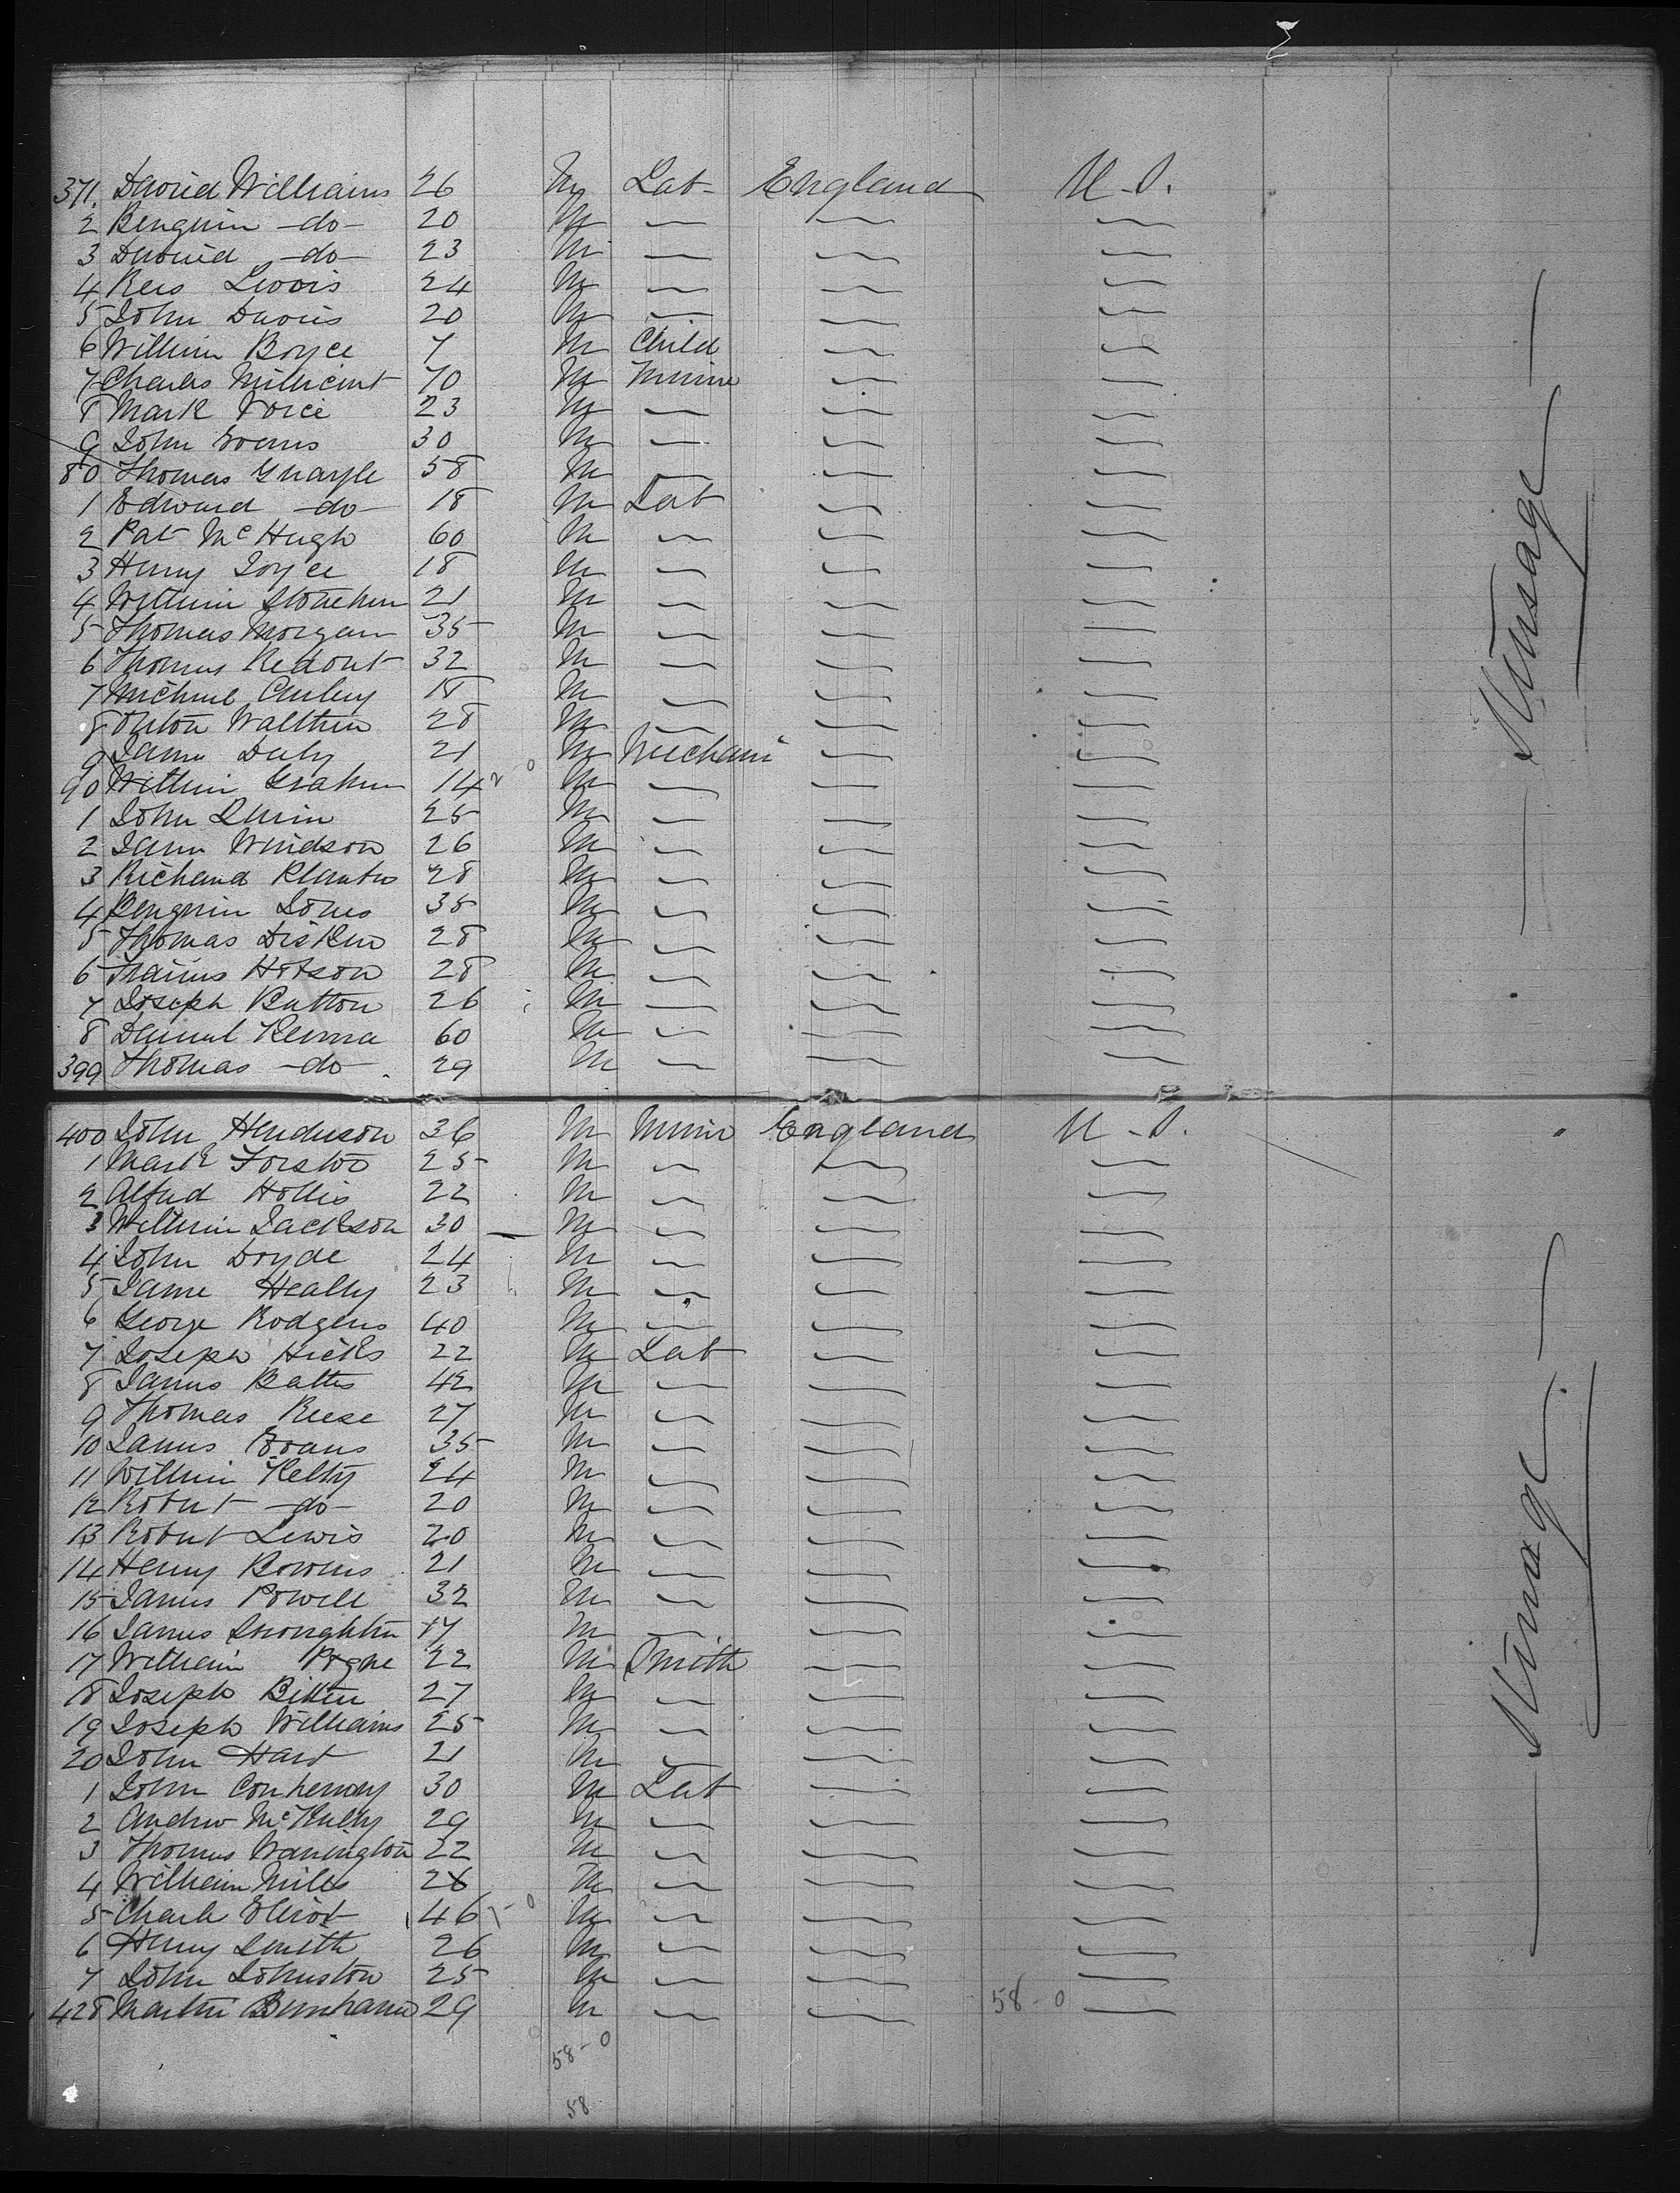 371. David Williams 26 M Lab- England U.S.
2 Benjmin -do- 20 M
3 David -do- 23 M
4 Rees Lewis 24 M
5 John Davis 20 M
6 William Boyce 7 M Child
7 Charles Millicent 70 M Miner
8 Mark Voice 23 M
9 John Evans 30 M
80 Thomas 58 M
1 Edward -do- 18 M Lab
2 Pat McHugh 60 M
3 Henry Joyce 18 M
4 William 21 M
5 Thomas Morgan 35 M
6 Thomas Redout 32 M
7 Michael 18 M
8 28 M
9 James Daly 21 M Mechani
90 William Graham 14 M
1 John Quin 25 M
2 James Windson 26 M
3 Richard 28 M
4 Benjmin Jones 35 M
5 Thomas Disken 28 M
6 Hotson 28 M
7 Joseph Button 26 M
8 Daniel 60 M
399 Thomas -do- 29 M
Steerage
400 John Henderson 36 M Miner England U.S.
1 Mark Forster 25 M
2 Alfred Hollis 22 M
3 William Jackson 30 M
4 John Dryde 24 M
5 Jame Healey 23 M
6 George Rodgers 40 M
7 Joseph Hicks 22 M Lab
8 James Battes 42 M
9 Thomas Reese 27 M
10 James Evans 35 M
11 William Kelty 24 M
12 Robert -do- 20 M
13 Robert Lewis 20 M
14 Henry Bowens 21 M
15 James Powell 32 M
16 James 17 M
17 William 22 M Smith
18 Joseph 27 M
19 Joseph Williams 25 M
20 John Hart 21 M
1 John 30 M Lab
2 Andrew 29 M
3 Thomas Warrington 22 M
4 William Miles 26 M
5 Charle Eliot 46 M
6 Henry Smith 26 M
7 John Johnston 25 M
428 Martin Burnham 29 M
58-0
58-0
58
Steerage